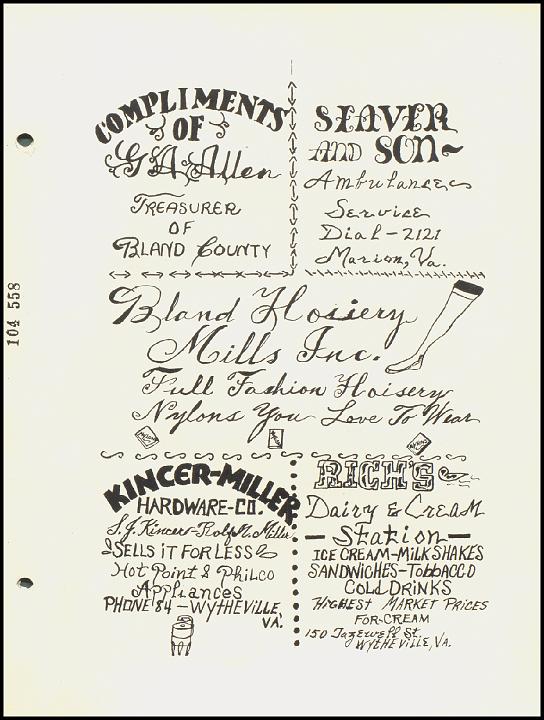 COMPLIMENTS
OF
G A Allen
TREASURER
OF
BLAND COUNTY
SEAVER
AND SON~
Ambulance
Service
Dial-2121
Marion, Va.
104 558
Bland Hosiery
Mills Inc.
Full Fashion Hoisery
Nylons You Love To Wear
KINCER-MILLER
HARDWARE-CO.
S.J. Kincer-Rolf M. Miller
SELLS iT FOR LESS
Hot Point & PhiLCO
APPLIANCES
PHONE 84-WYTHEVILLE,
VA.
RICH'S
Dairy & CREAM
-Station-
ICE CREAM-MILKSHAKES
SANDWICHES-TOBBACCO
COLD DRINKS
HIGHEST MARKET PRICES
FOR-CREAM
150 Tazewell St.
WYTHEVILLE, VA.